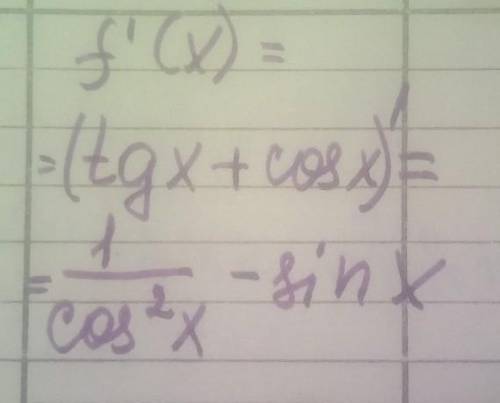 f'(x) =
= (tgx + cosx)' =
= 1/cos²x - sin x